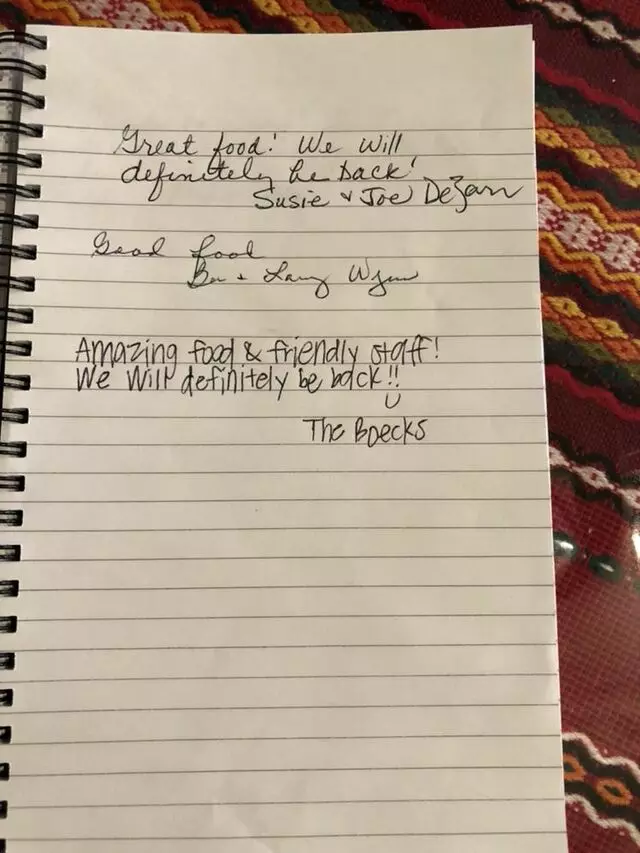 Great food! We will
definitely be back!
Susie & Joe DeZarn
Good food
& Larry
Amazing food & friendly staff!
We Will definitely be back!!
The Boecks